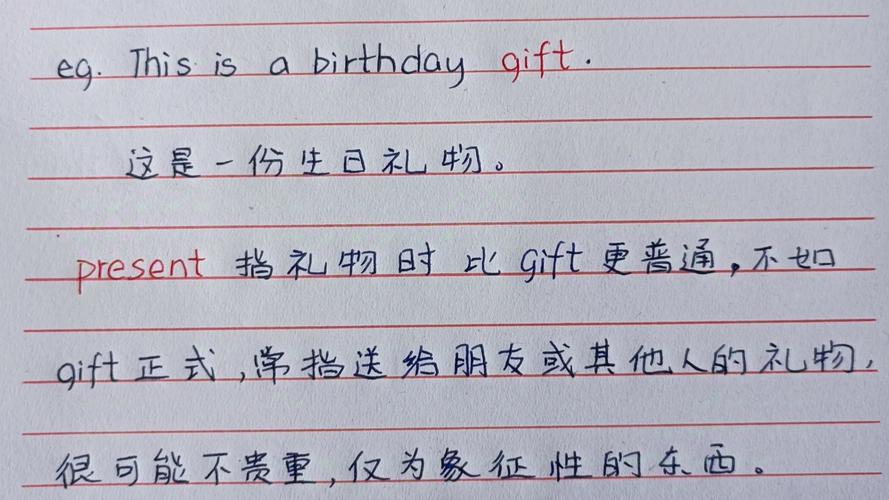 eg. This is a birthday gift.
这是一份生日礼物。
present 指礼物时比 gift 更普通,不如
gift 正式,常指送给朋友或其他人的礼物,
很可能不贵重,仅为象征性的东西。